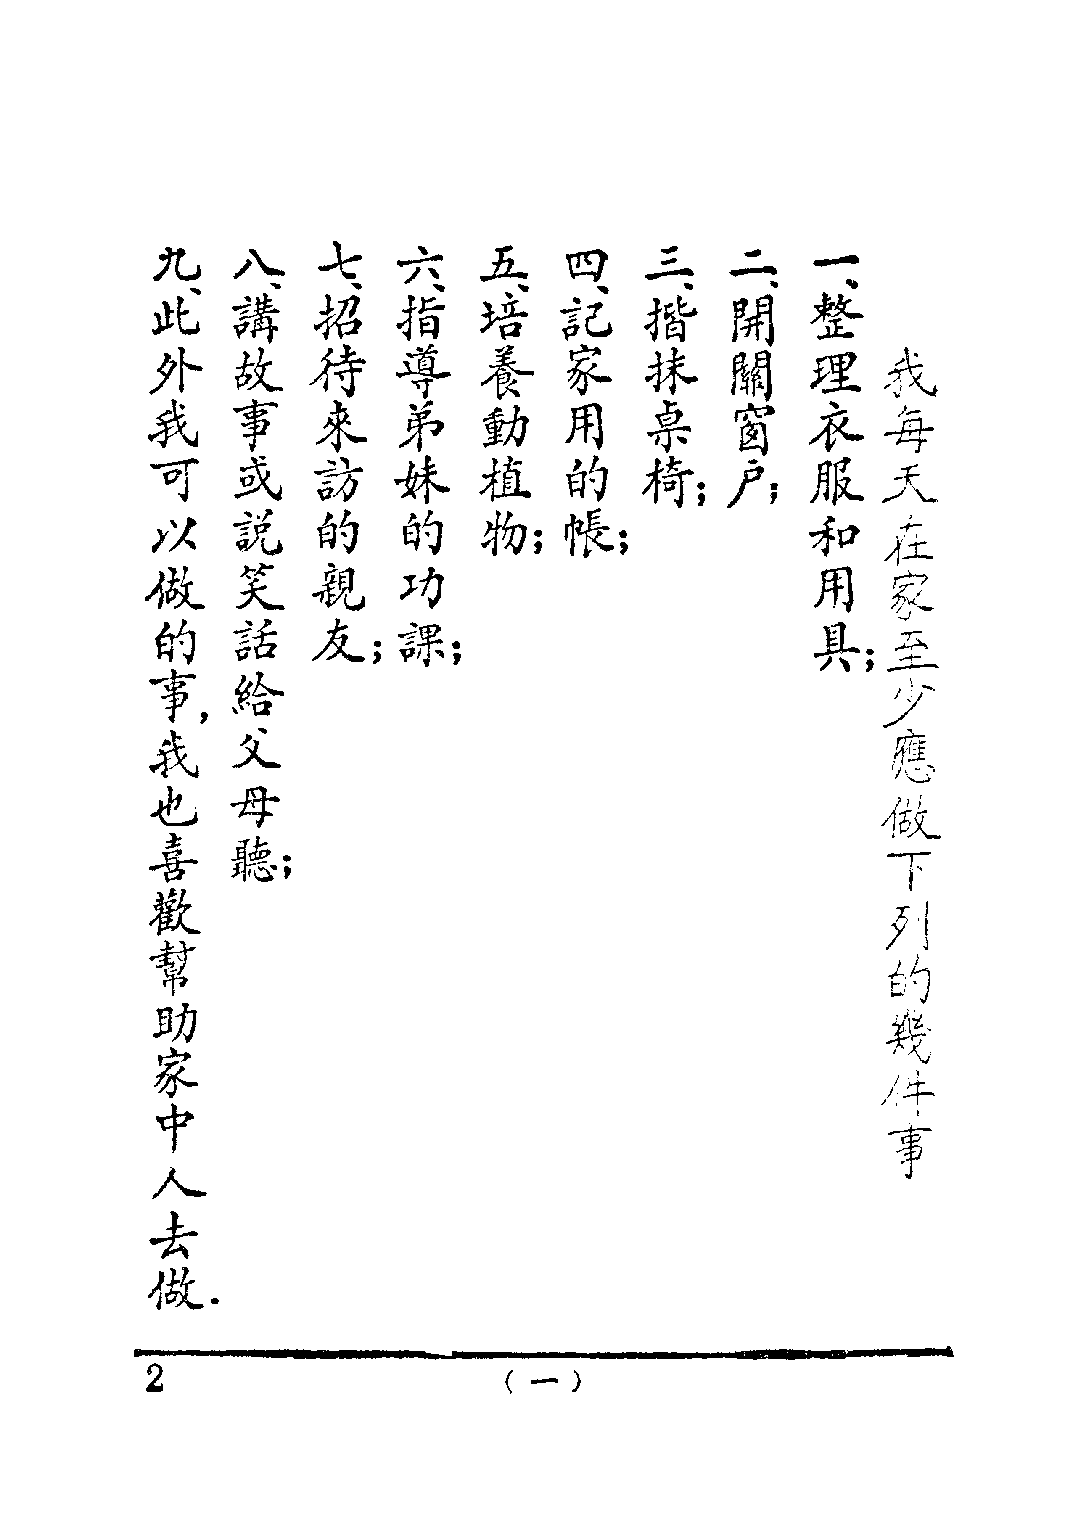 我每天在家至少應做下列的幾件事
一、整理衣服和用具；
二、開關窗戶；
三、揩抹桌椅；
四、記家用的帳；
五、培養動植物；
六、指導弟妹的功課；
七、招待來訪的親友；
八、講故事或説笑話給父母聽；
九、此外我可以做的事，我也喜歡幫助家中人去做．
2
（一）